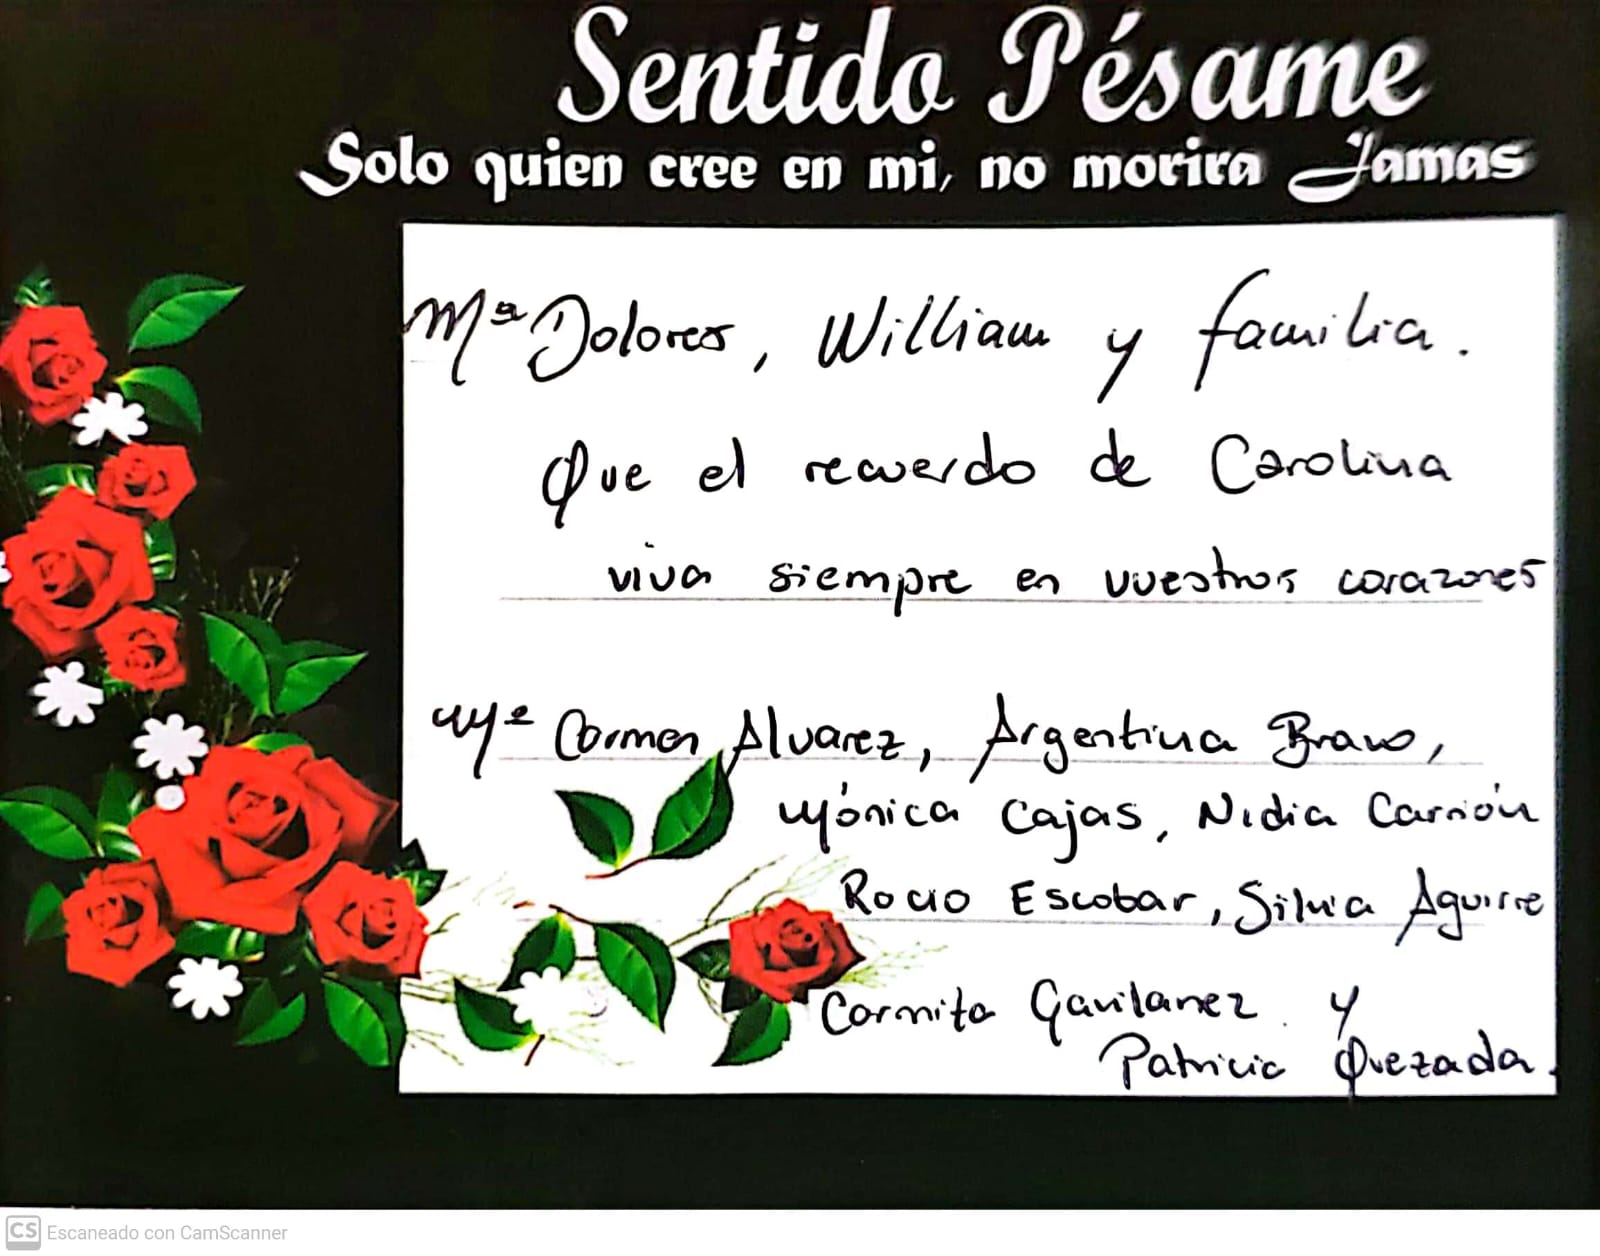 Sentido Pésame
Solo quien cree en mi, no morira Jamas
Mª Dolores, William y familia.
Que el recuerdo de Carolina
viva siempre en vuestros corazones
Mª Carmen Alvarez, Argentina Bravo,
Mónica Cajas, Nidia Carrión
Rocio Escobar, Silvia Aguirre
Carmita Gavilanez y
Patricia Quezada.
CS Escaneado con CamScanner